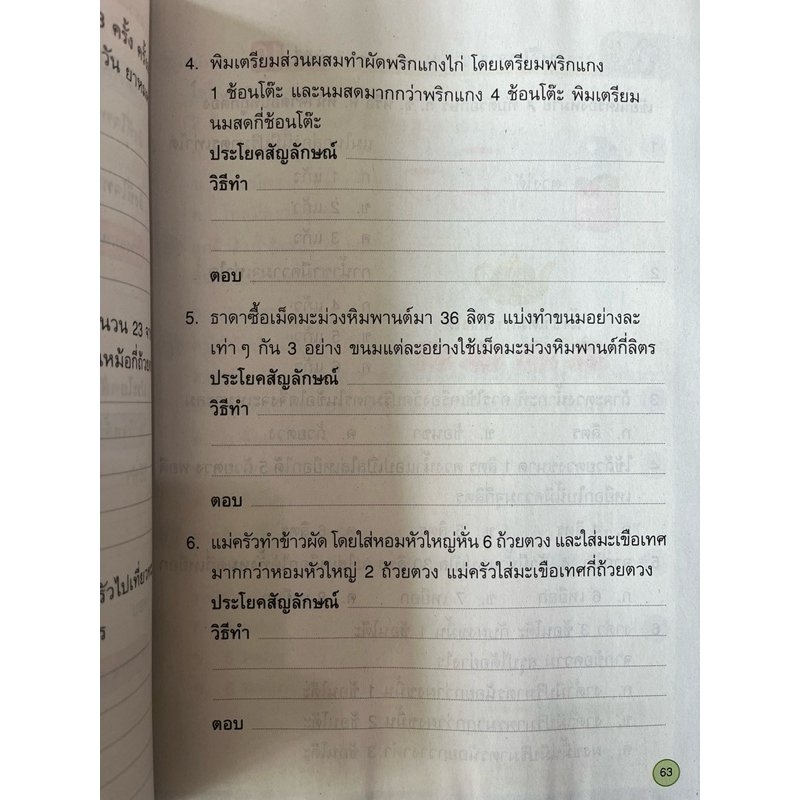 3 ครั้ง
วัน
4. พิมเตรียมส่วนผสมทำผัดพริกแกงไก่ โดยเตรียมพริกแกง
1 ช้อนโต๊ะ และนมสดมากกว่าพริกแกง 4 ช้อนโต๊ะ พิมเตรียม
นมสดกี่ช้อนโต๊ะ
ประโยคสัญลักษณ์
วิธีทำ
ตอบ
นวน 23
เหม้อกี่ถ้วย
5. ธาดาซื้อเม็ดมะม่วงหิมพานต์มา 36 ลิตร แบ่งทำขนมอย่างละ
เท่า ๆ กัน 3 อย่าง ขนมแต่ละอย่างใช้เม็ดมะม่วงหิมพานต์กี่ลิตร
ประโยคสัญลักษณ์
วิธีทำ
ตอบ
รัวไปเที่ยว
ร
6. แม่ครัวทำข้าวผัด โดยใส่หอมหัวใหญ่หั่น 6 ถ้วยตวง และใส่มะเขือเทศ
มากกว่าหอมหัวใหญ่ 2 ถ้วยตวง แม่ครัวใส่มะเขือเทศกี่ถ้วยตวง
ประโยคสัญลักษณ์
วิธีทำ
ตอบ
63